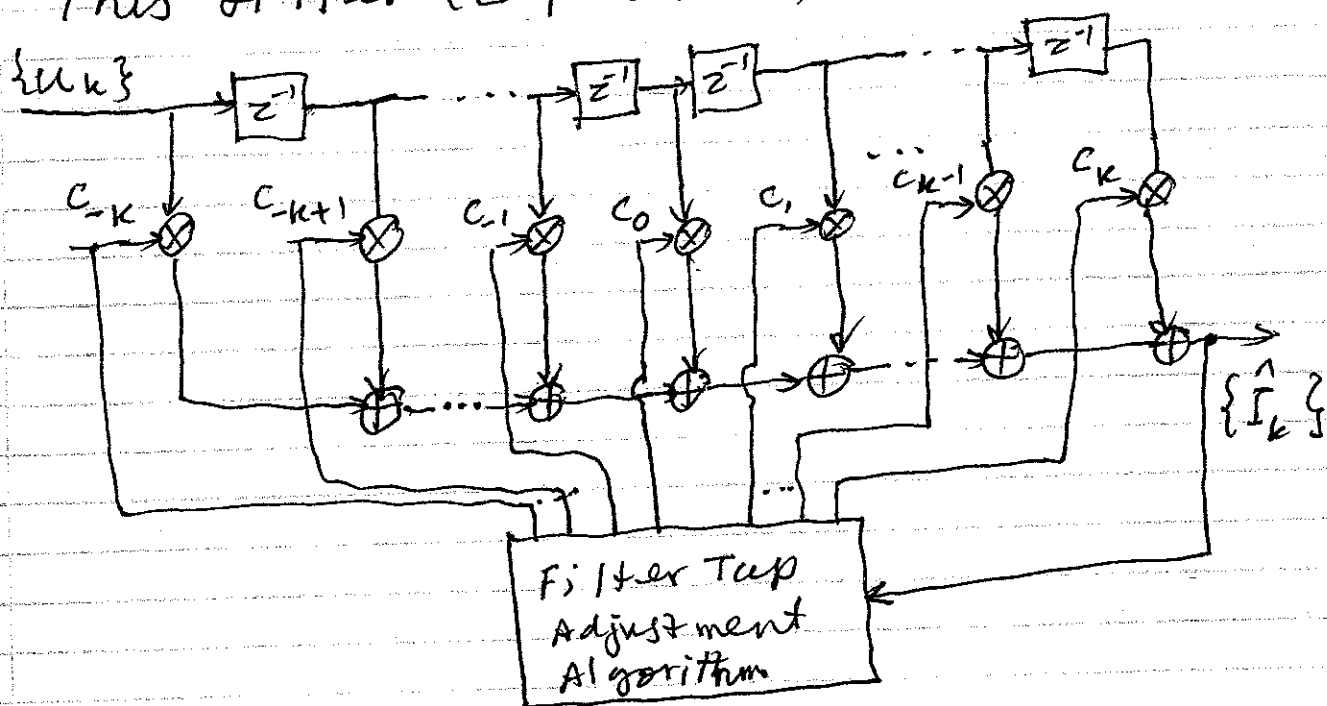 {u_k}
z^-1
...
z^-1
z^-1
...
z^-1
C_-K
C_-K+1
C_-1
C_0
C_1
...
C_K-1
C_K
...
...
{Î_k}
...
...
Filter Tap
Adjustment
Algorithm